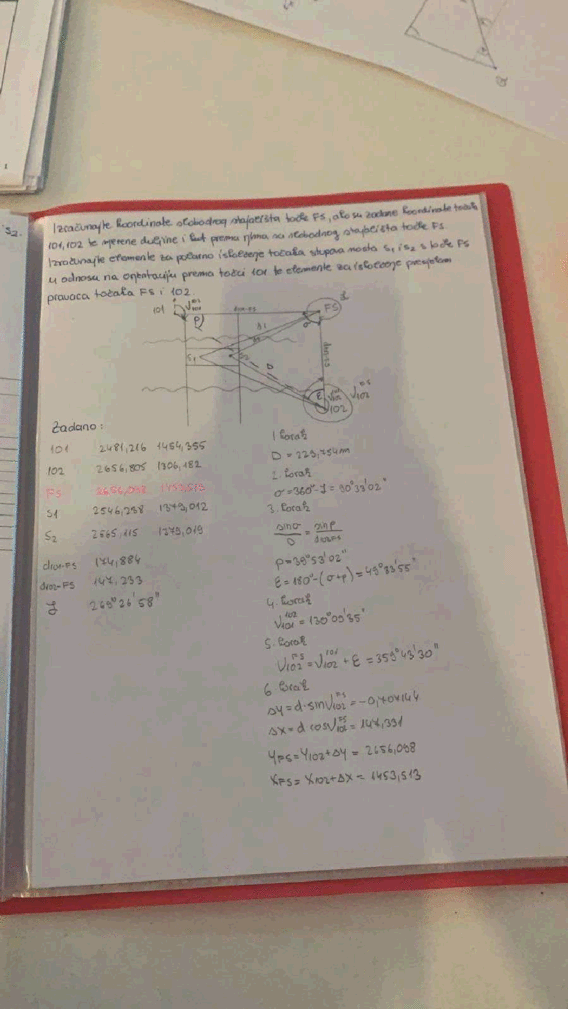 Izračunajte koordinate slobodnog stajališta točke FS, ako su zadane koordinate točaka
101, 102 te mjerene duljine i kut prema njima sa slobodnog stajališta točke FS.
Izračunajte elemente za polarno iskolčenje točaka stupova mosta S1 i S2 s točke FS
u odnosu na orijentaciju prema točci 101 te elemente za iskolčenje presjekom
pravaca točaka FS i 102.
101 FS
S1
102
Zadano:
101 2481,216 1454,355
102 2656,805 1306,182
FS
S1 2546,258 1379,012
S2 2565,115 1279,019
d101-FS 174,884
d102-FS 147,333
269°26'58"
1. korak
D = 229,754m
2. korak
σ=360°-γ=90°33'02"
3. korak
sinσ/D = sinρ/d102FS
ρ=39°53'02"
ε=180°-(σ+ρ)=49°33'55"
4. korak
ν101102=130°09'35"
5. korak
ν102FS=ν102101+ε=359°43'30"
6. korak
Δy=d·sinν102FS=
Δx=d cosν = 147,331
YFS=Y102+Δy= 2656,098
XFS=X102+Δx= 1453,513